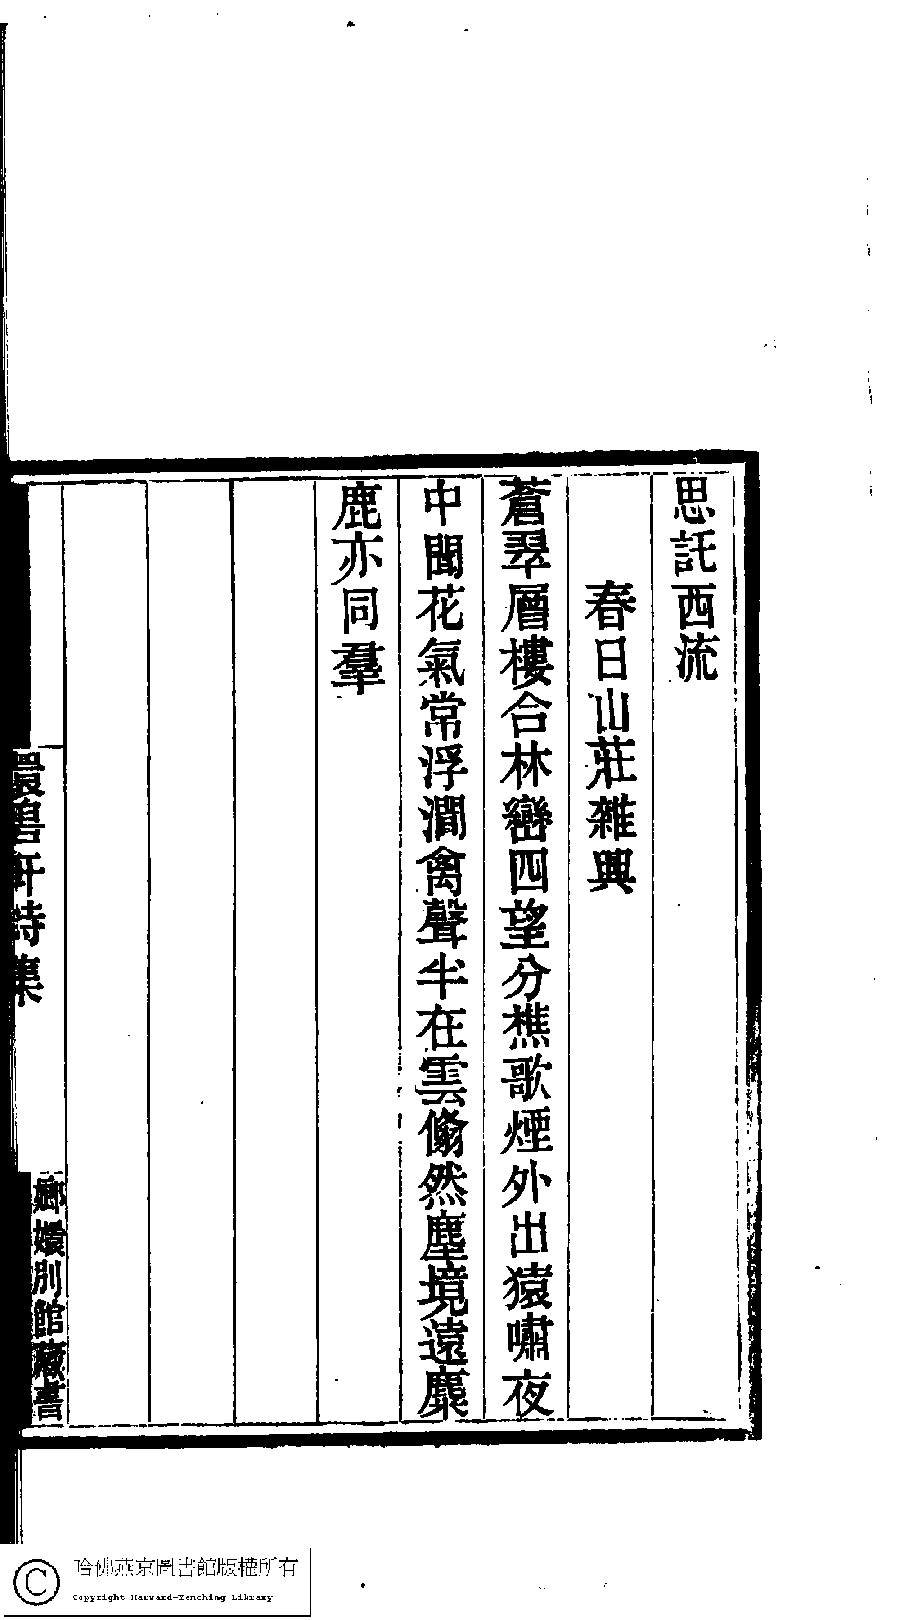 思託西流
春日山莊雜興
蒼翠層樓合林巒四望分樵歌煙外出猿嘯夜
中聞花氣常浮澗禽聲半在雲翛然塵境遠麋
鹿亦同羣
環碧軒詩集
嫏嬛別館藏書
哈佛燕京圖書館版權所有
Copyright Harvard-Yenching Library